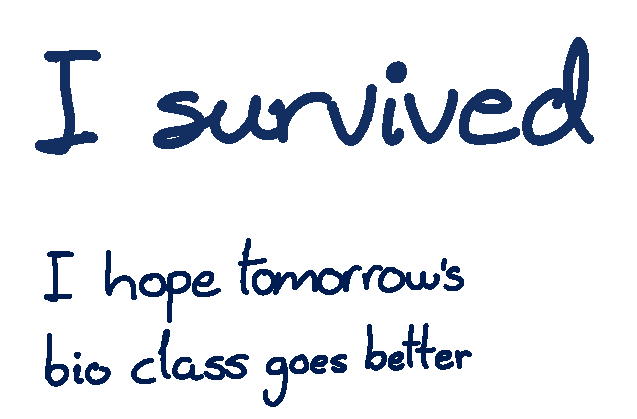 I survived
I hope tomorrow's
bio class goes better